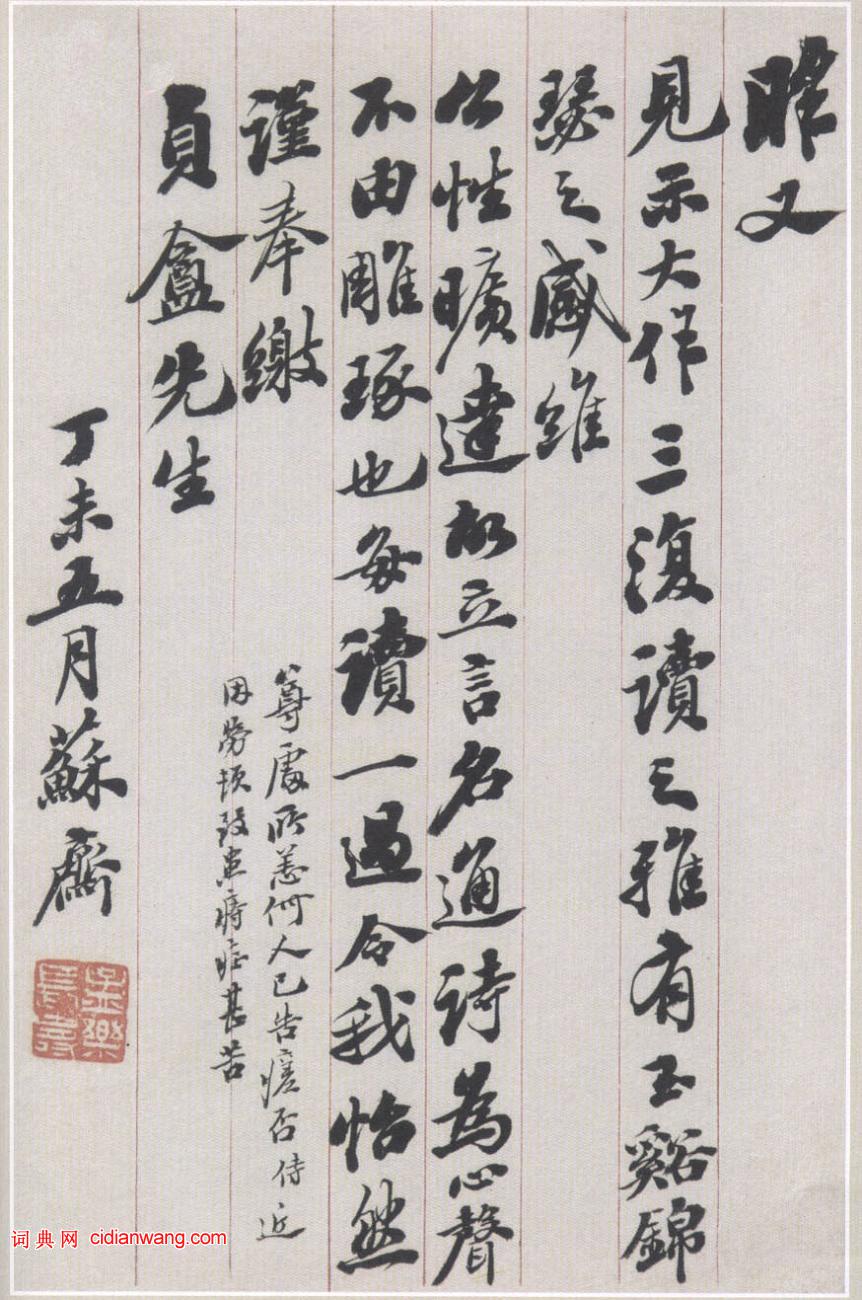 昨又
見示大作三復讀之雅有玉谿錦
瑟之感維
公性曠達故立言名通詩為心聲
不由雕琢也每讀一過令我怡然
謹奉繳
貞盦先生
尊處所恙何人已告瘥否侍近
因勞頓致患痔症甚苦
丁未五月蘇齋
長壽
词典网 cidianwang.com